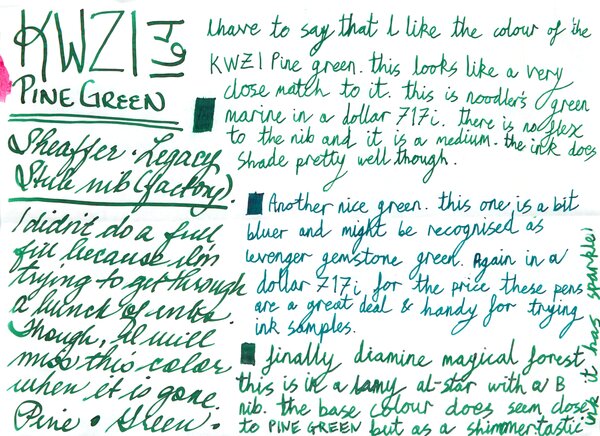 KWZI 164
PINE GREEN
Sheaffer. Legacy
Stub nib (factory).
I didn't do a full
fill because I'm
trying to get through
a bunch of inks.
Though, I will
miss this color
when it is gone.
Pine. Green.
I have to say that I like the colour of the
KWZI Pine green. this looks like a very
close match to it. this is noodler's green
marine in a dollar 717i. there is no flex
to the nib and it is a medium. the ink does
shade pretty well though.
Another nice green. this one is a bit
bluer and might be recognised as
wenger gemstone green. Again in a
dollar 717i for the price these pens
are a great deal & handy for trying
ink samples.
finally diamine magical forest
this is in a lamy al-star with a B
nib. the base colour does seem close
to PINE GREEN but as a shimmertastic
ink it has sparkle!